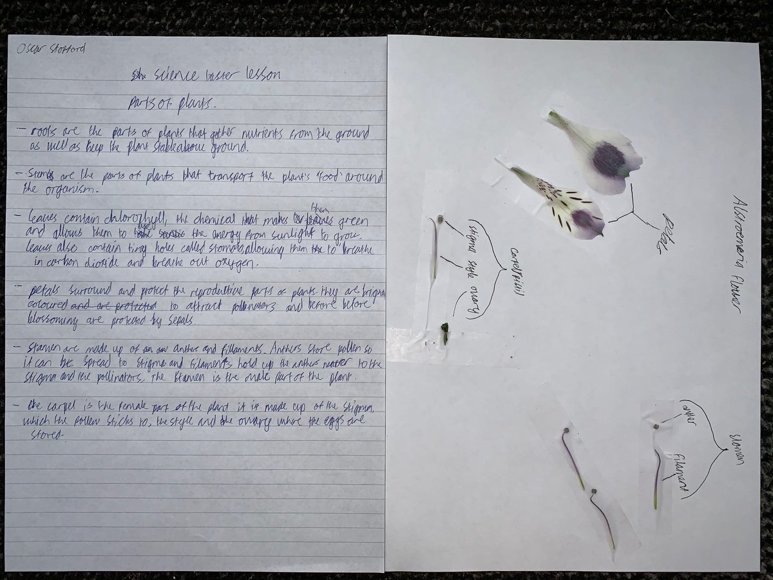 Oscar
science taster lesson
Parts of plants.
- roots are the parts of plants that gather nutrients from the ground
as well as keep the plant stable above ground.
- Stems are the parts of plants that transport the plants 'food' around
the organism.
- leaves contain chlorophyll, the chemical that makes them green
and allows them to the energy from sunlight to grow.
leaves also contain tiny holes called stomata, allowing them to breathe
in carbon dioxide and breathe out oxygen.
- petals surround and protect the reproductive parts of plants they are
coloured and are protected to attract pollinators and before before
blossoming are protected by sepals.
- Stamen are made up of an anther and fillaments. Anthers store pollen so
it can be spread to stigma and filaments hold up the anthers to the
stigma and the pollinators. The stamen is the male part of the plant.
- the carpel is the female part of the plant it is made up of the stigma,
which the pollen sticks to, the style and the ovary where the eggs are
stored.
Alstroemeria flower
petals
carpel/pistil
(stigma style ovary)
stamen
(anther filament)